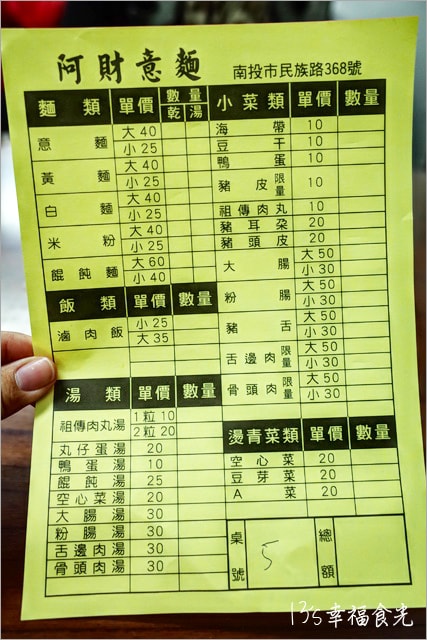 阿財意麵 南投市民族路368號
麵類 單價 數量 乾 湯
意麵 大 40
小 25
黃麵 大 40
小 25
白麵 大 40
小 25
米粉 大 40
小 25
餛飩麵 大 60
小 40
飯類 單價 數量
滷肉飯 小 25
大 35
湯類 單價 數量
祖傳肉丸湯 1粒 10
2粒 20
丸仔蛋湯 20
鴨蛋湯 10
餛飩湯 25
空心菜湯 20
大腸湯 30
粉腸湯 30
舌邊肉湯 30
骨頭肉湯 30
小菜類 單價 數量
海帶 10
豆干 10
鴨蛋 10
豬皮 限量 10
祖傳肉丸 10
豬耳朵 20
豬頭皮 20
大腸 大 50
小 30
粉腸 大 50
小 30
豬舌 大 50
小 30
舌邊肉 限量 大 50
小 30
骨頭肉 限量 大 50
小 30
燙青菜類 單價 數量
空心菜 20
豆芽菜 20
A菜 20
桌號 5 總額
13's幸福食光